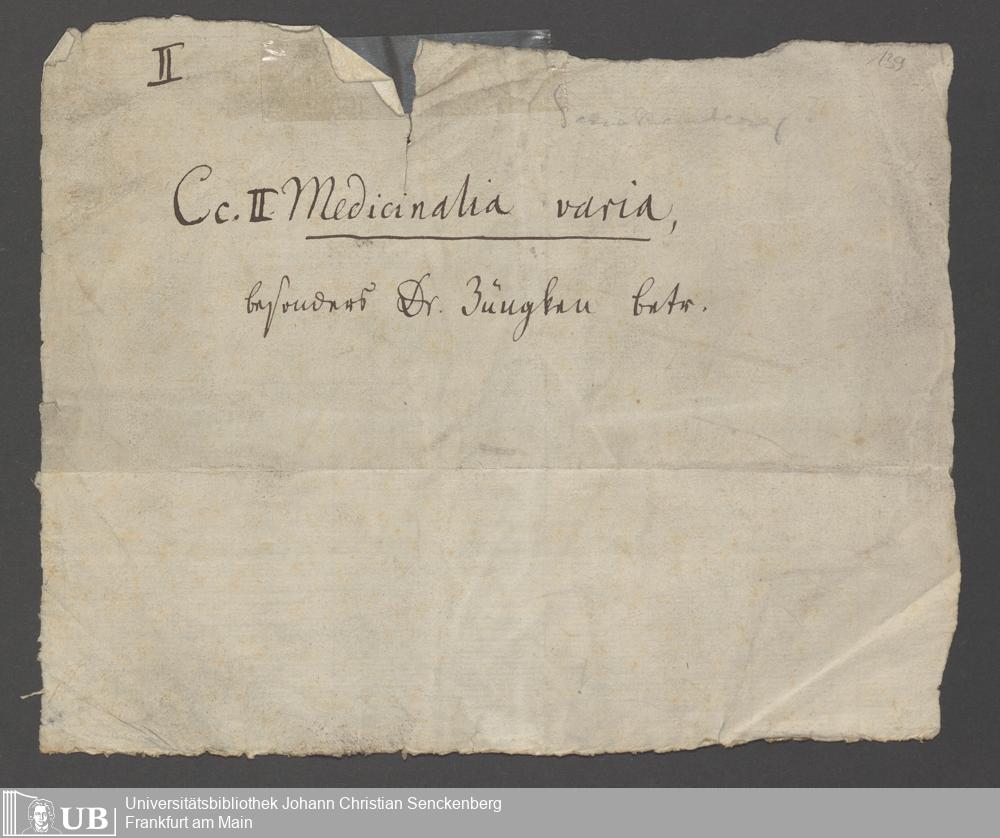 II
139
Senckenberg
Cc. II. Medicinalia varia,
besonders Dr. Jüngken betr.
UB
Universitätsbibliothek Johann Christian Senckenberg
Frankfurt am Main